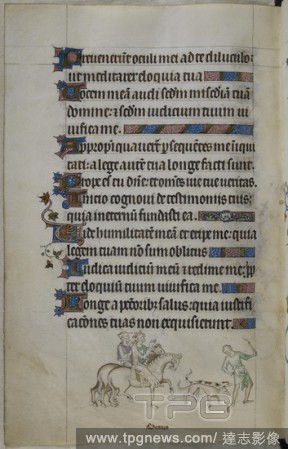 Prevenerūt oculi mei ad te diluculo:
ut meditarer eloquia tua
Vocem meā audi scdm mīsediā tuā
domine: ⁊ scdm iudicium tuum ui
uifica me.
Appropīquauerūt ꝑsequētes me iniqui
tati: a lege autē tua longe facti sunt.
Prope es tu dn̄e: ⁊ omnes uie tue ueritas.
Inicio cognoui de testimoniis tuis:
quia in eternū fundasti ea.
Vide humilitatē meā ⁊ eripe me: quia
legem tuam nō sum oblitus
Iudica iudiciū meū ⁊ redime me: ꝓp
ter eloquiū tuum uiuifica me.
Longe a pctōribꝫ salus: quia iustifi
cacōnes tuas non exquisierunt.
TPG
www.tpgnews.com / 達志影像